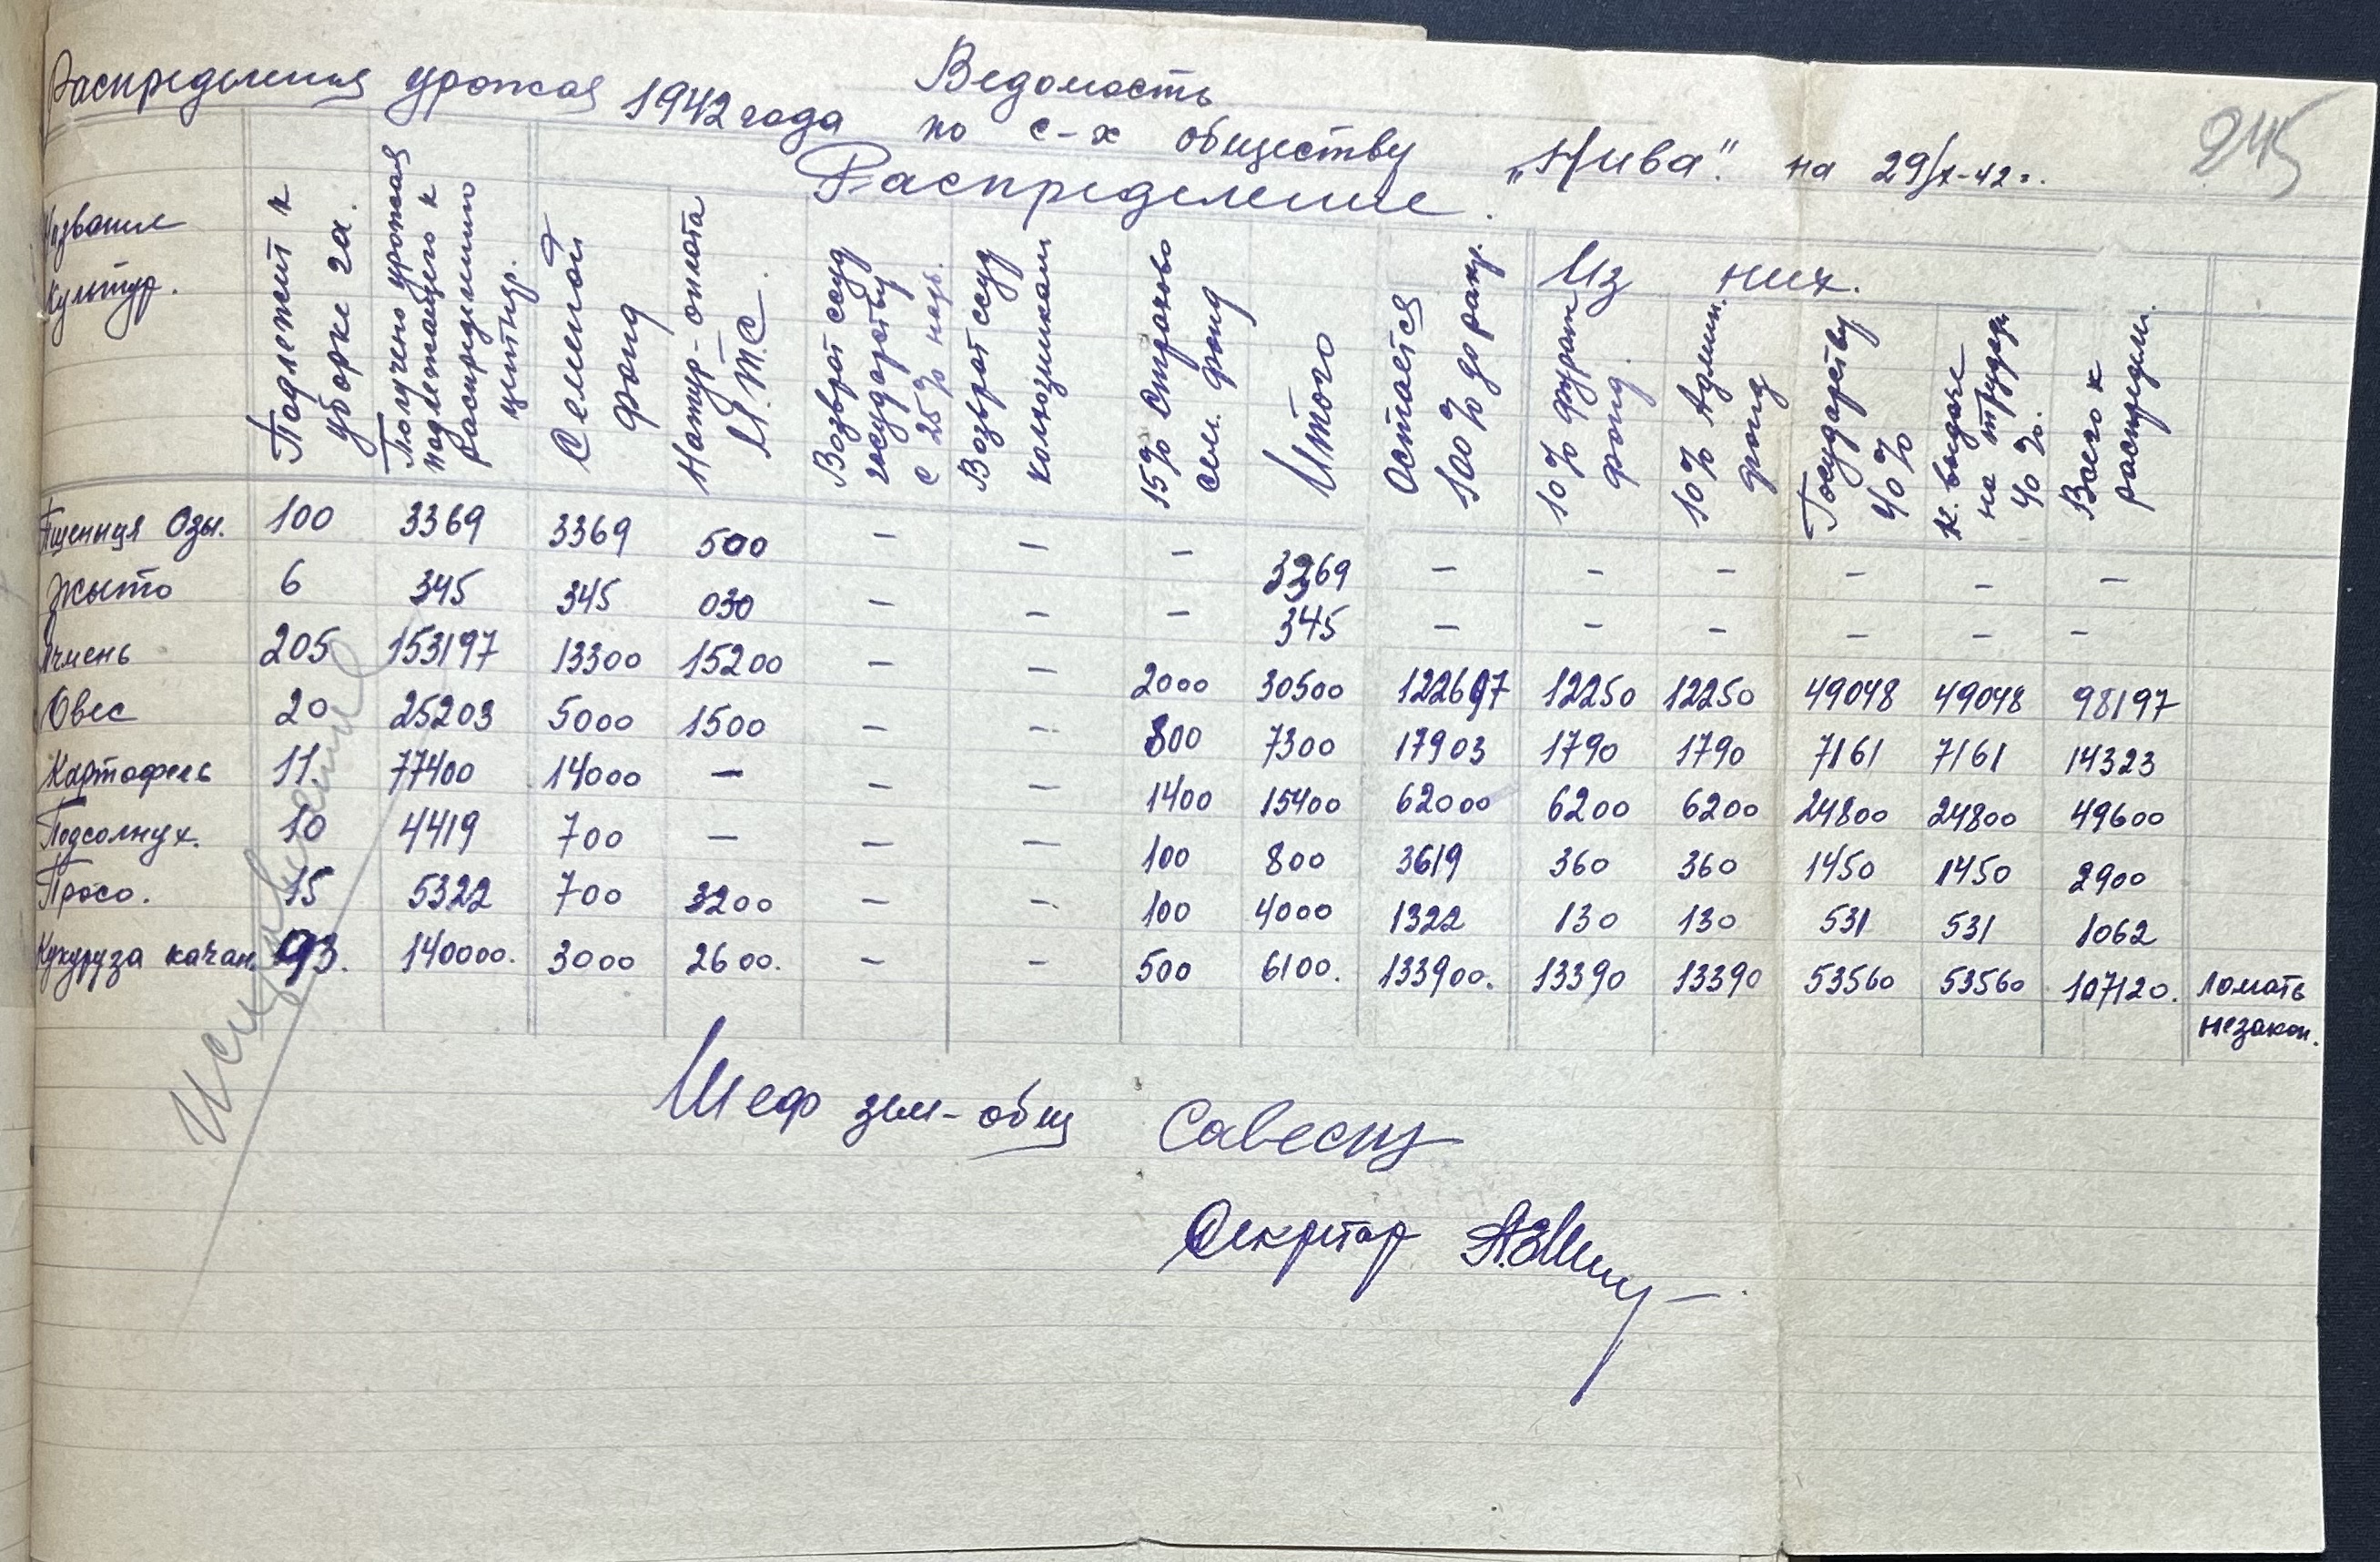 Ведомость
Распределения урожая 1942 года по с-х обществу „Нива". на 29/X-42 г.
245
Распределение.
Название культур.
Подлежит к уборке га.
Получено урожая подлежащего к распределению центнр.
Семеной фонд
Натур-оплота М.Т.С.
Возврот ссуд государству с 25% надв.
Возврот ссуд колхозникам
15% Страхово сем. фонд
Итого
Остается 100% до распр.
Из них.
10% фураж фонд.
10% Админ. фонд
Государству 40%
К. выдаче на трудодн 40%.
Всего к распредел.
Пшеныця Озы. 100 3369 3369 500 – – – 3369 – – – – – –
Жыто 6 345 345 030 – – – 345 – – – – – –
Ячмень 205 153197 13300 15200 – – 2000 30500 122697 12250 12250 49048 49048 98197
Овес 20 25203 5000 1500 – – 800 7300 17903 1790 1790 7161 7161 14323
Картофель 11. 77400 14000 – – – 1400 15400 62000 6200 6200 24800 24800 49600
Подсолнух. 10 4419 700 – – – 100 800 3619 360 360 1450 1450 2900
Просо. 15 5322 700 3200 – – 100 4000 1322 130 130 531 531 1062
Кукуруза качан. 93. 140000. 3000 2600. – – 500 6100. 133900. 13390 13390 53560 53560 107120. ломать
незакон.
Шеф зем-общ
Секретар